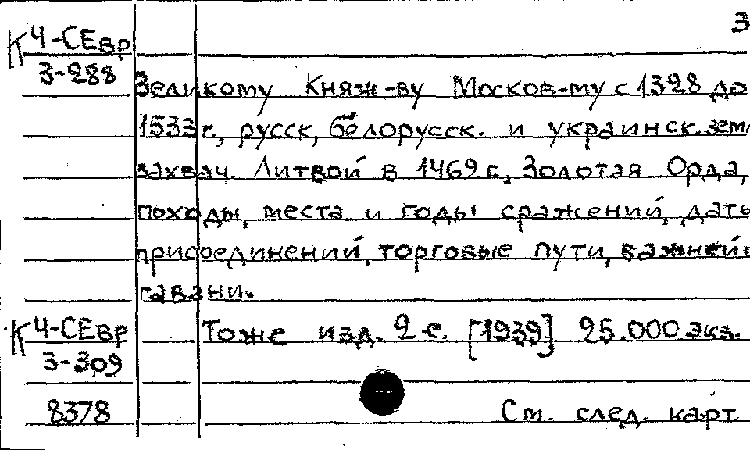 3
К Ч-СЕвр
3-288
Великому Княж-ву Москов-му с 1328 до
1533 г., русск, белорусск. и украинск. зем
захвач. Литвой в 1469 г., Золотая Орда,
походы, места и годы сражений, даты
присоединений, торговые пути, важней
гавани.
К Ч-СЕвр Тоже изд. 2-е. [1939] 25.000 экз.
3-309
8378 См. след. карт